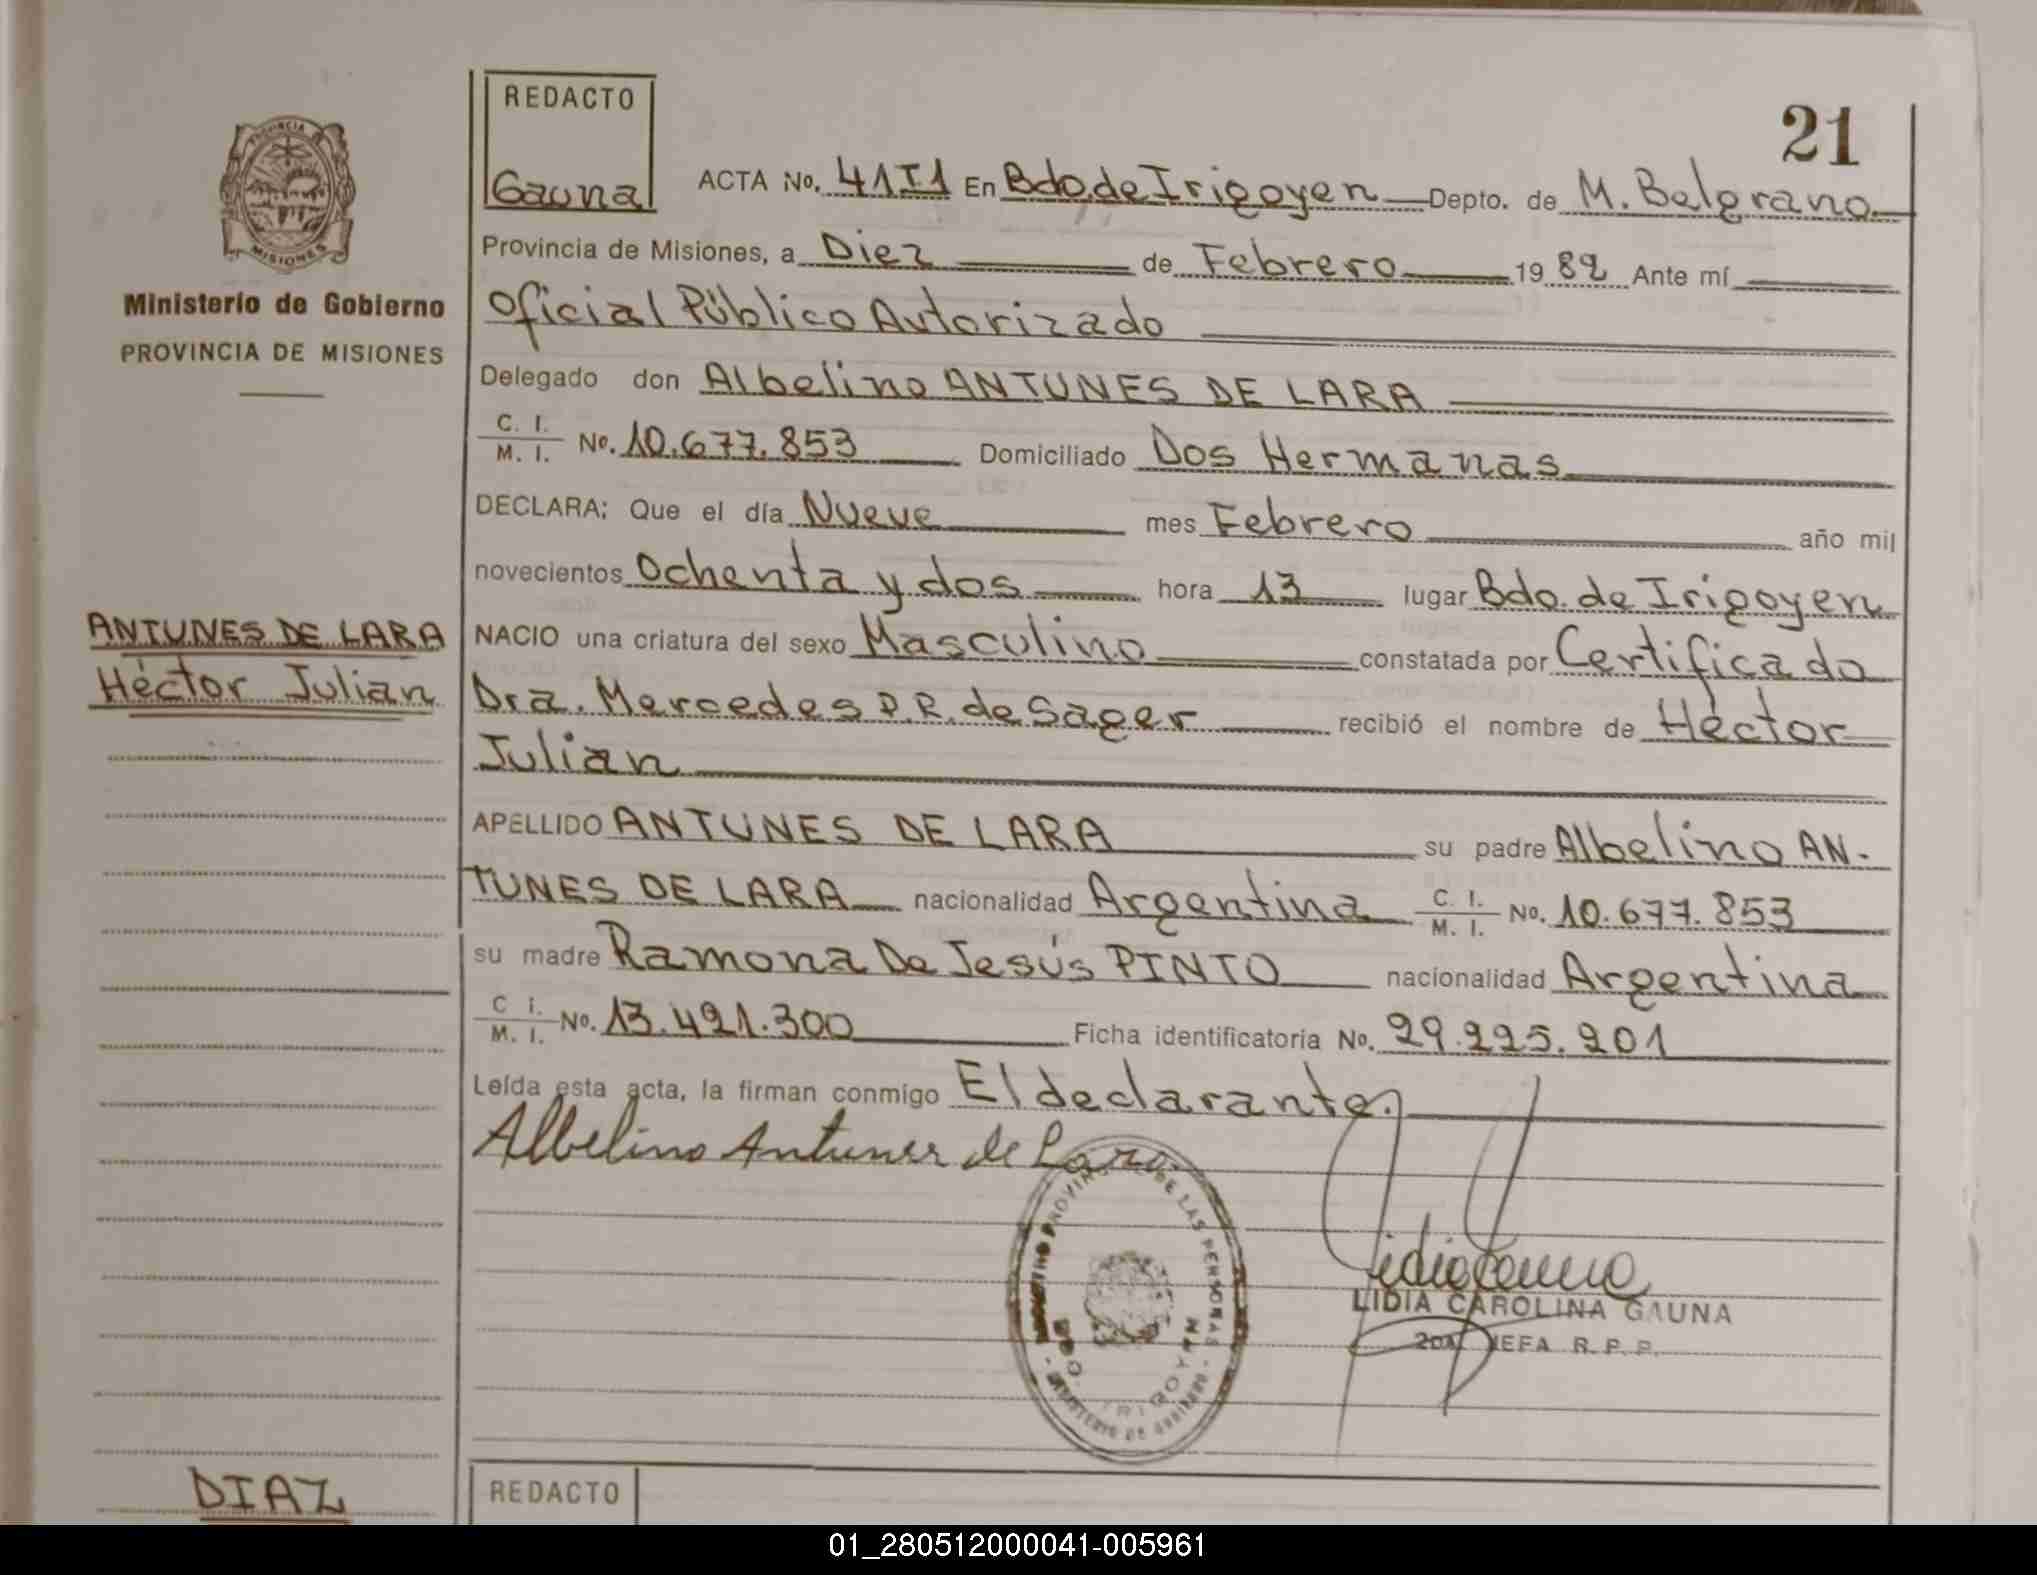 REDACTO
Gauna
21
ACTA No. 41T1 En Bdo. de Irigoyen Depto. de M. Belgrano
Provincia de Misiones, a Diez de Febrero 1982 Ante mí
Oficial Público Autorizado
Ministerio de Gobierno
PROVINCIA DE MISIONES
Delegado don Albelino ANTUNES DE LARA
C. I. M. I. No. 10.677.853 Domiciliado Dos Hermanas
DECLARA: Que el día Nueve mes Febrero año mil
novecientos Ochenta y dos hora 13 lugar Bdo. de Irigoyen
ANTUNES DE LARA
Héctor Julian
NACIO una criatura del sexo Masculino constatada por Certificado
Dra. Mercedes P.R. de Sager recibió el nombre de Héctor
Julian
APELLIDO ANTUNES DE LARA su padre Albelino AN-
TUNES DE LARA nacionalidad Argentina C. I. M. I. No. 10.677.853
su madre Ramona De Jesús PINTO nacionalidad Argentina
C I. M. I. No. 13.421.300 Ficha identificatoria No. 29.225.201
Leída esta acta, la firman conmigo El declarante.
Albelino Antunes de Lara
LIDIA CAROLINA GAUNA
2da JEFA R. P. P.
DIAZ
REDACTO
01_280512000041-005961